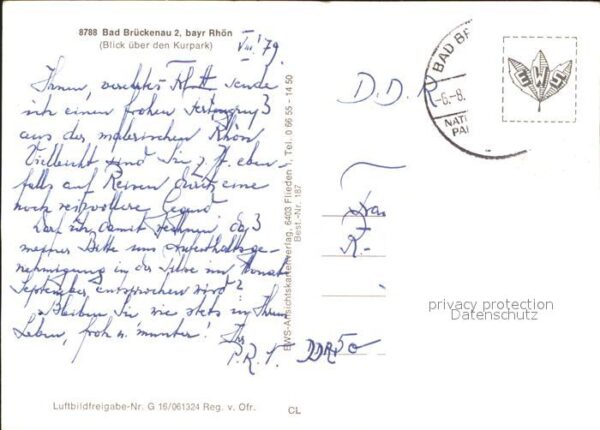 8788 Bad Brückenau 2, bayr Rhön
(Blick über den Kurpark)
VIII '79
Ihnen, verehrtes sende
ich einen frohen Feriengruß
aus der malerischen Rhön.
Vielleicht sind Sie z. Zt. eben-
falls auf Reisen durch eine
noch reizvollere Gegend.
Darf ich damit rechnen, daß
meiner Bitte um Aufenthaltsge-
nehmigung in der im Monat
September entsprochen wird?
Bleiben Sie wie stets in Ihrem
Leben, froh u. munter! Ihr
P. R. T. DDR 50
EWS-Ansichtskartenverlag, 6403 Flieden 1, Tel. 0 66 55 - 14 50
Best.-Nr. 187
D.D.R
BAD BR
-6.-8.
NAT
PA
EWS
Frau
R.-
privacy protection
Datenschutz
Luftbildfreigabe-Nr. G 16/061324 Reg. v. Ofr.
CL